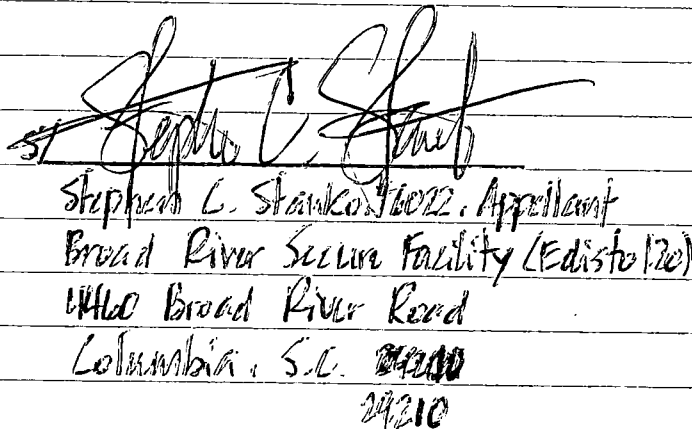 s/ Stephen C. Stanko
Stephen C. Stanko, 6022, Appellant
Broad River Secure Facility (Edisto
4460 Broad River Road
Columbia, S.C.
29210